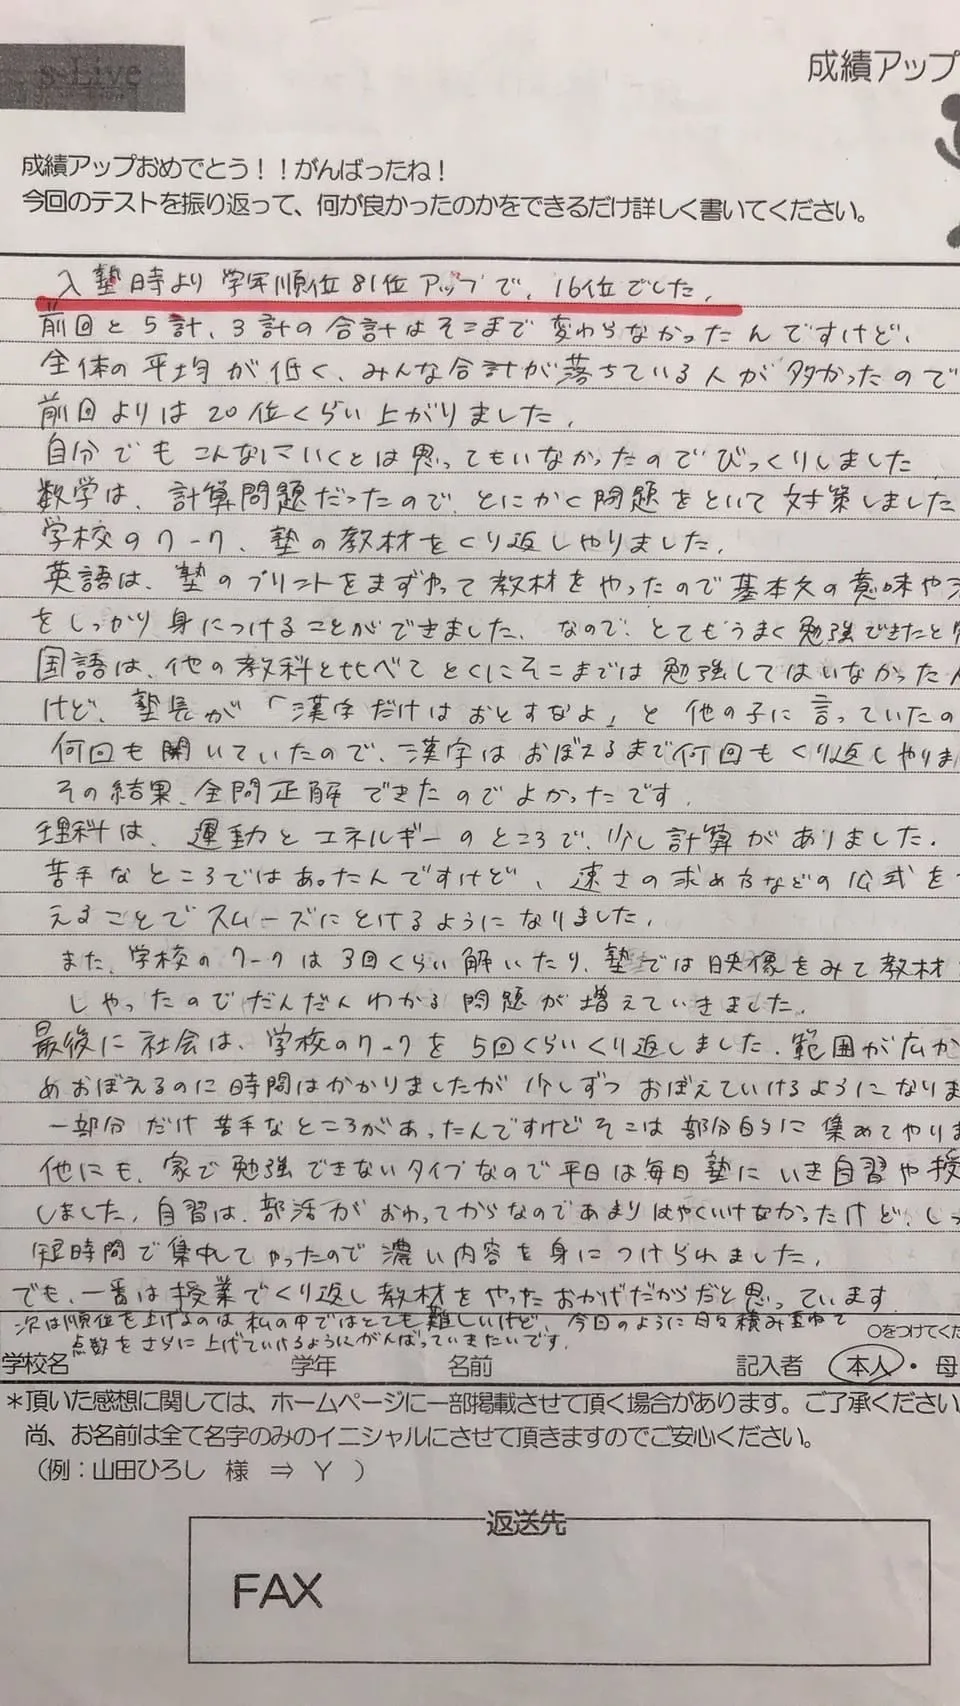 s-Live
成績アップ
成績アップおめでとう！！がんばったね！
今回のテストを振り返って、何が良かったのかをできるだけ詳しく書いてください。
入塾時より学年順位81位アップで、16位でした。
前回と5計、3計の合計はそこまで変わらなかったんですけど、
全体の平均が低く、みんな合計が落ちている人が多かったので
前回よりは20位くらい上がりました。
自分でもこんなにいくとは思ってもいなかったのでびっくりしました
数学は、計算問題だったので、とにかく問題をといて対策しました
学校のワーク、塾の教材をくり返しやりました。
英語は、塾のプリントをまずやって教材をやったので基本文の意味や
をしっかり身につけることができました。なので、とてもうまく勉強できたと
国語は、他の教科と比べてとくにそこまでは勉強してはいなかった
けど、塾長が「漢字だけはおとすなよ」と他の子に言っていたの
何回も聞いていたので、漢字はおぼえるまで何回もくり返しやりま
その結果、全問正解できたのでよかったです。
理科は、運動とエネルギーのところで、少し計算がありました。
苦手なところではあったんですけど、速さの求め方などの公式を
えることでスムーズにとけるようになりました。
また、学校のワークは3回くらい解いたり、塾では映像をみて教材
しやったのでだんだんわかる問題が増えていきました。
最後に社会は、学校のワークを5回くらいくり返しました。範囲が広か
めおぼえるのに時間はかかりましたが少しずつおぼえていけるようになりま
一部分だけ苦手なところがあったんですけどそこは部分的に集めてやりま
他にも、家で勉強できないタイプなので平日は毎日塾にいき自習や授
しました。自習は、部活がおわってからなのであまりはやくいけなかったけど、しっ
短時間で集中してやったので濃い内容を身につけられました。
でも、一番は授業でくり返し教材をやったおかげだからだと思っています
次は順位を上げるのは私の中ではとても難しいけど、今回のように日々積み重ねて
点数をさらに上げていけるようにがんばっていきたいです。
○をつけてくだ
学校名 学年 名前 記入者 本人・母
＊頂いた感想に関しては、ホームページに一部掲載させて頂く場合があります。ご了承ください
尚、お名前は全て名字のみのイニシャルにさせて頂きますのでご安心ください。
（例：山田ひろし 様 ⇒ Y ）
返送先
FAX